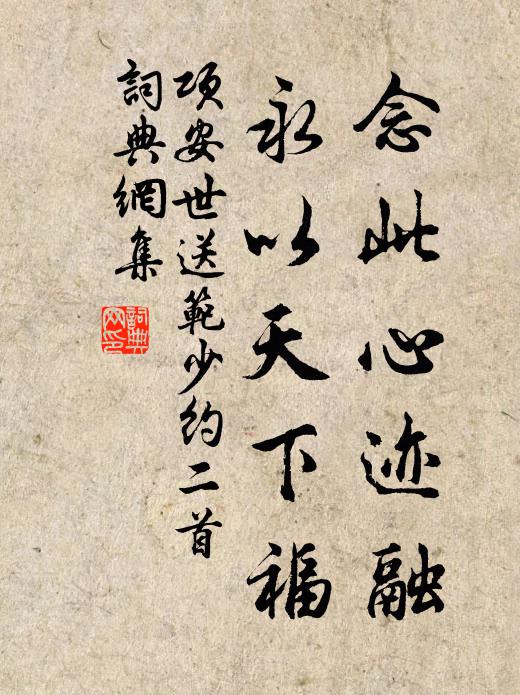 念此心迹融
永以天下福
项安世送範少约二首
詞典網集
詞典
网印